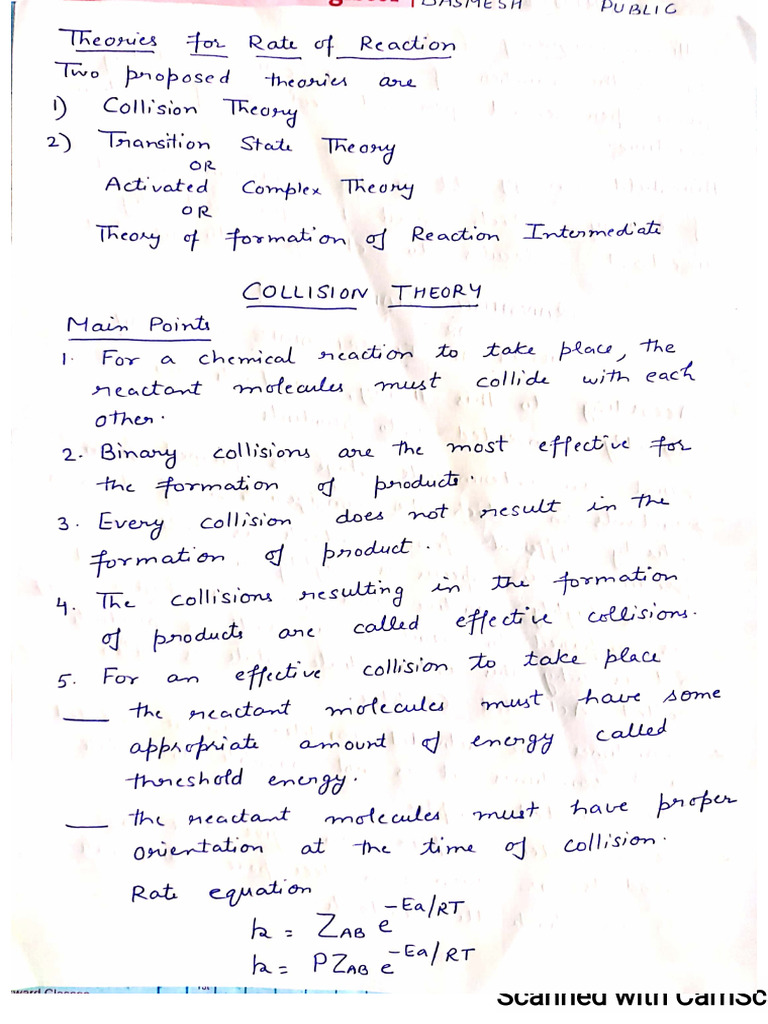 DASMESH PUBLIC
Theories for Rate of Reaction
Two proposed theories are
1) Collision Theory
2) Transition State Theory
OR
Activated Complex Theory
OR
Theory of formation of Reaction Intermediate
COLLISION THEORY
Main Points
1. For a chemical reaction to take place, the
reactant molecules must collide with each
other.
2. Binary collisions are the most effective for
the formation of products.
3. Every collision does not result in the
formation of product.
4. The collisions resulting in the formation
of products are called effective collisions.
5. For an effective collision to take place
__ the reactant molecules must have some
appropriate amount of energy called
threshold energy.
__ the reactant molecules must have proper
orientation at the time of collision.
Rate equation
k = Z_AB e^-Ea/RT
k = PZ_AB e^-Ea/RT
Scanned with CamSc